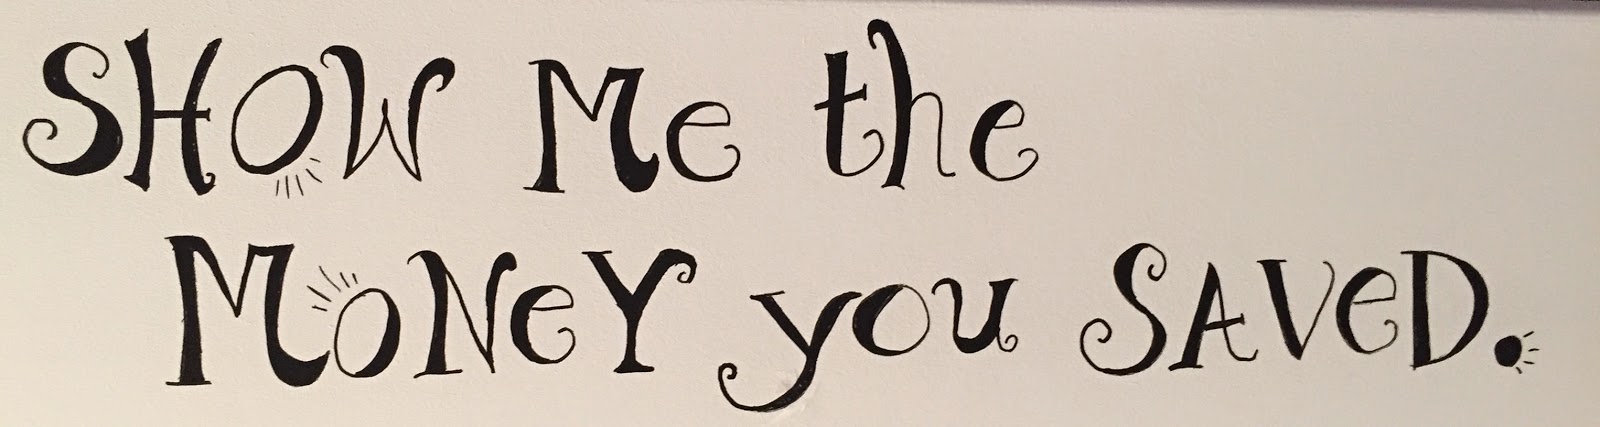 SHOW Me the
MONeY you SAVeD.